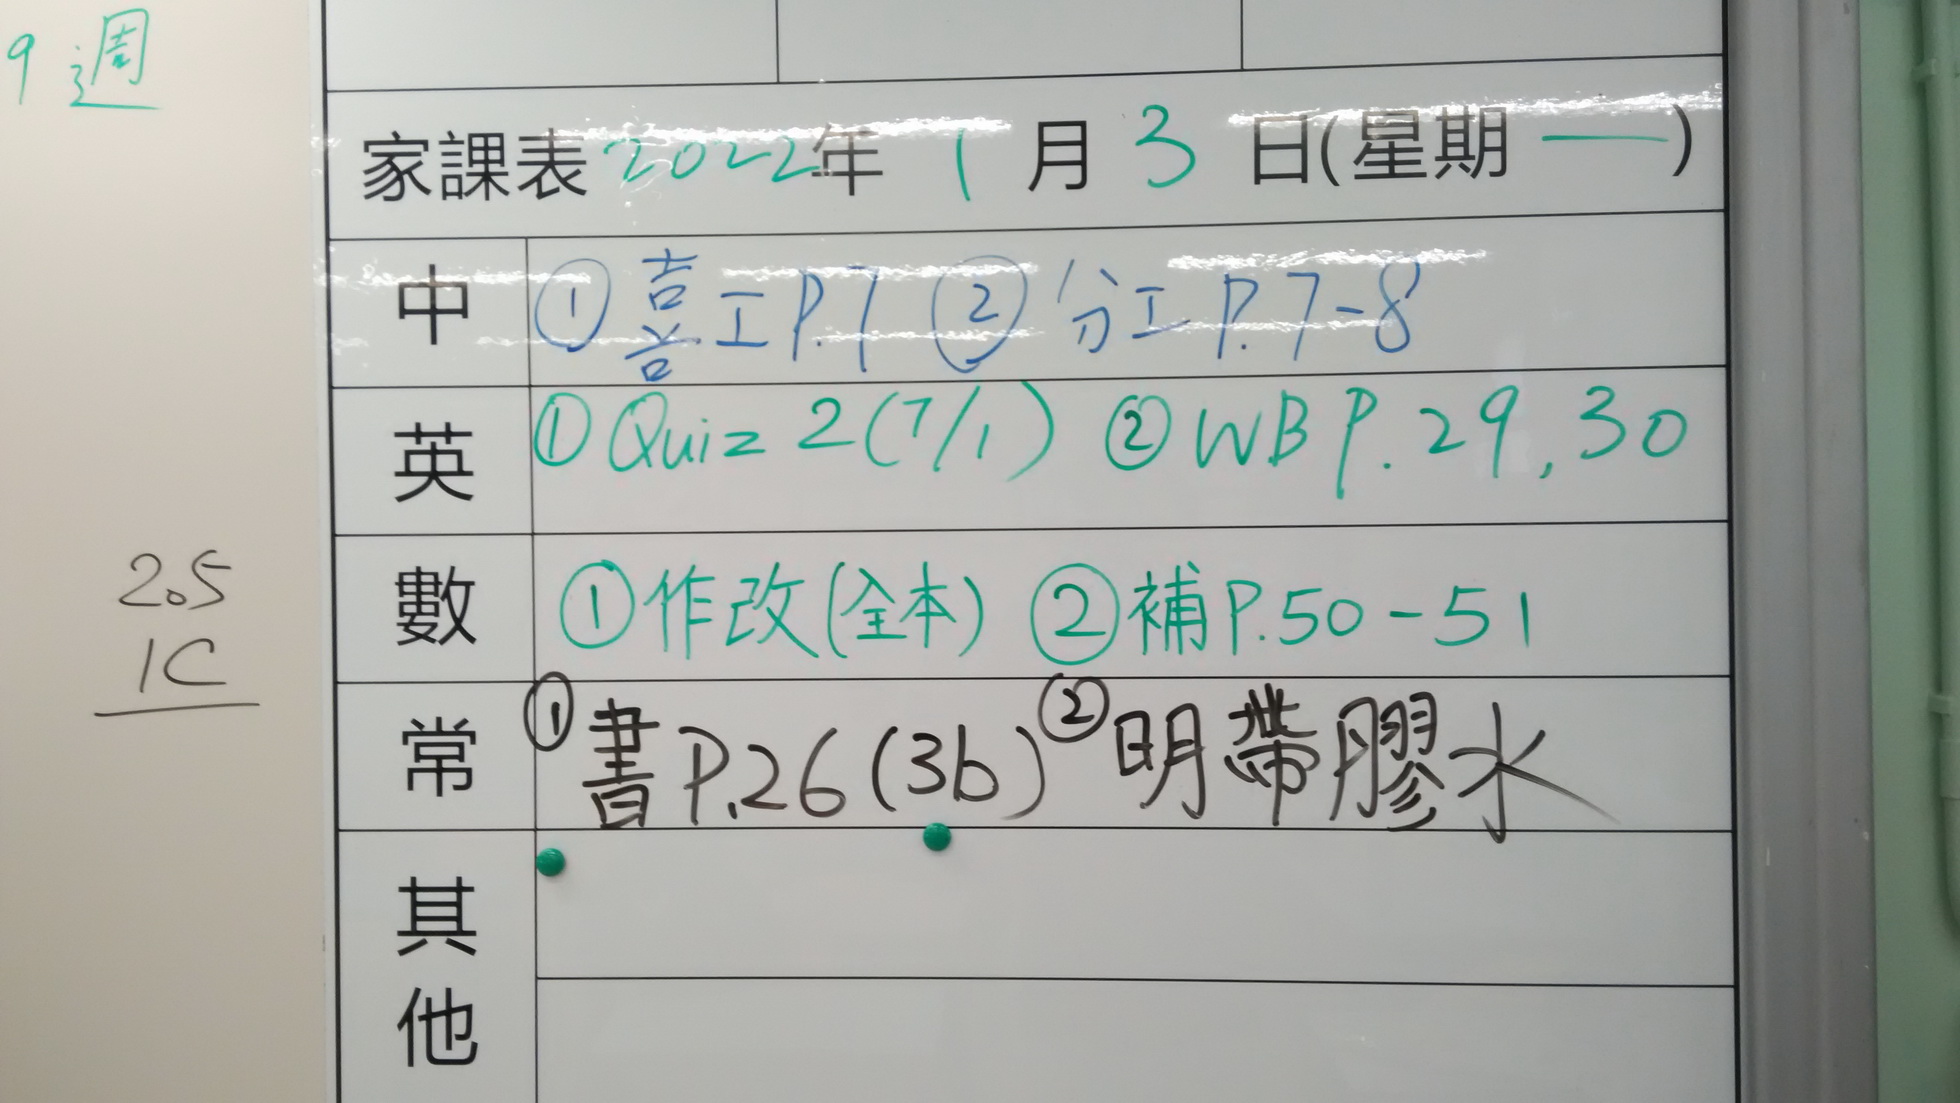 9 週
家課表 2022年 1 月 3 日(星期 一)
中 ① 喜工 P.7 ② 分工 P.7-8
英 ① Quiz 2 (7/1) ② WB P. 29, 30
數 ① 作改(全本) ② 補 P.50-51
常 ① 書 P.26 (3b) ② 明帶膠水
其他
2.5
1C